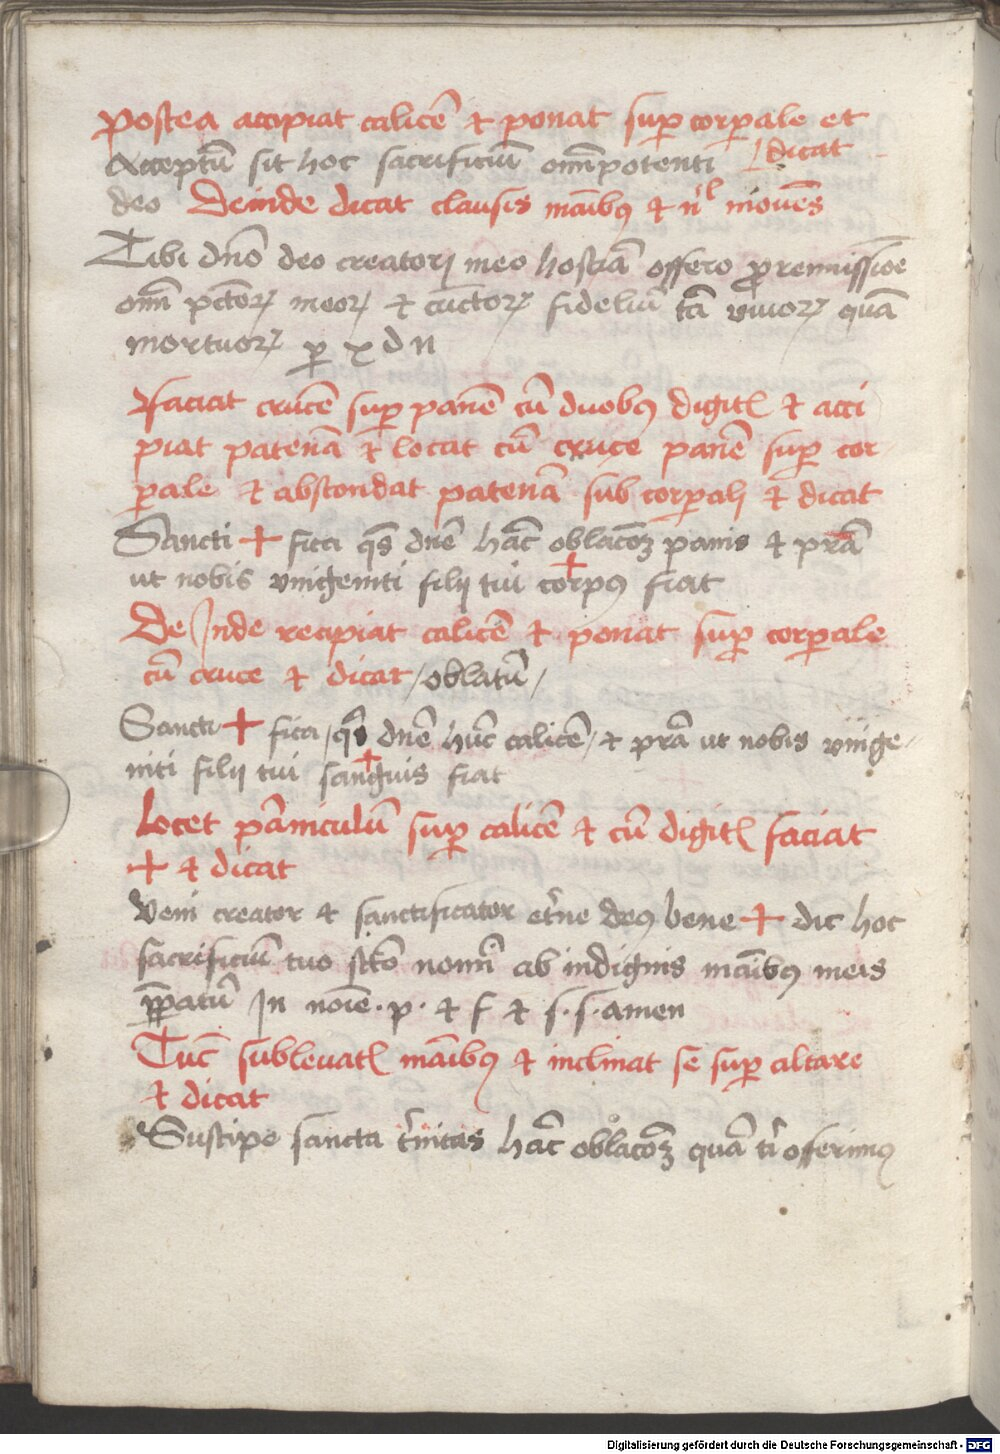 postea accipiat calicē et ponat suꝑ corꝑale et
dicat
Acceptū sit hoc sacrificiū om̄ipotenti
deo Deinde dicat clausis manibꝰ et nl̓ mouēs
Tibi dn̄o deo creatori meo hostiā offero ꝓ remissiōe
om̄ pctōꝝ meoꝝ et cūctoꝝ fideliū tā viuoꝝ quā
mortuoꝝ ꝑ x d n
Faciat crucē suꝑ panē cū duobꝰ digitꝭ et acci
piat patenā et locat cū cruce panē suꝑ cor
ꝑale et abscondat patenā sub corꝑali et dicat
Sancti + fica qs̄ dn̄e hāc oblacōꝫ panis et prā
ut nobis vnigeniti filij tui cor+pꝰ fiat
De Inde recipiat calicē et ponat suꝑ corꝑale
cū cruce et dicat / oblatū /
Sancti + fica / qs̄ dn̄e hūc calicē / et prā ut nobis vnige
niti filij tui san+guis fiat
Locet pāniculū suꝑ calicē et cū digitꝭ faciat
+ et dicat
Veni creator et sanctificator et̓ne deꝰ bene + dic hoc
sacrificiū tuo sc̄to nomi̅ ab indignis manibꝰ meis
p̄ꝑatū In noīe · p · et f et s · s · amen
Tūc subleuatꝭ manibꝰ et inclinat se suꝑ altare
et dicat
Suscipe sancta t̓nitas hāc oblacōꝫ quā ti̓ offerimꝰ
Digitalisierung gefördert durch die Deutsche Forschungsgemeinschaft - DFG